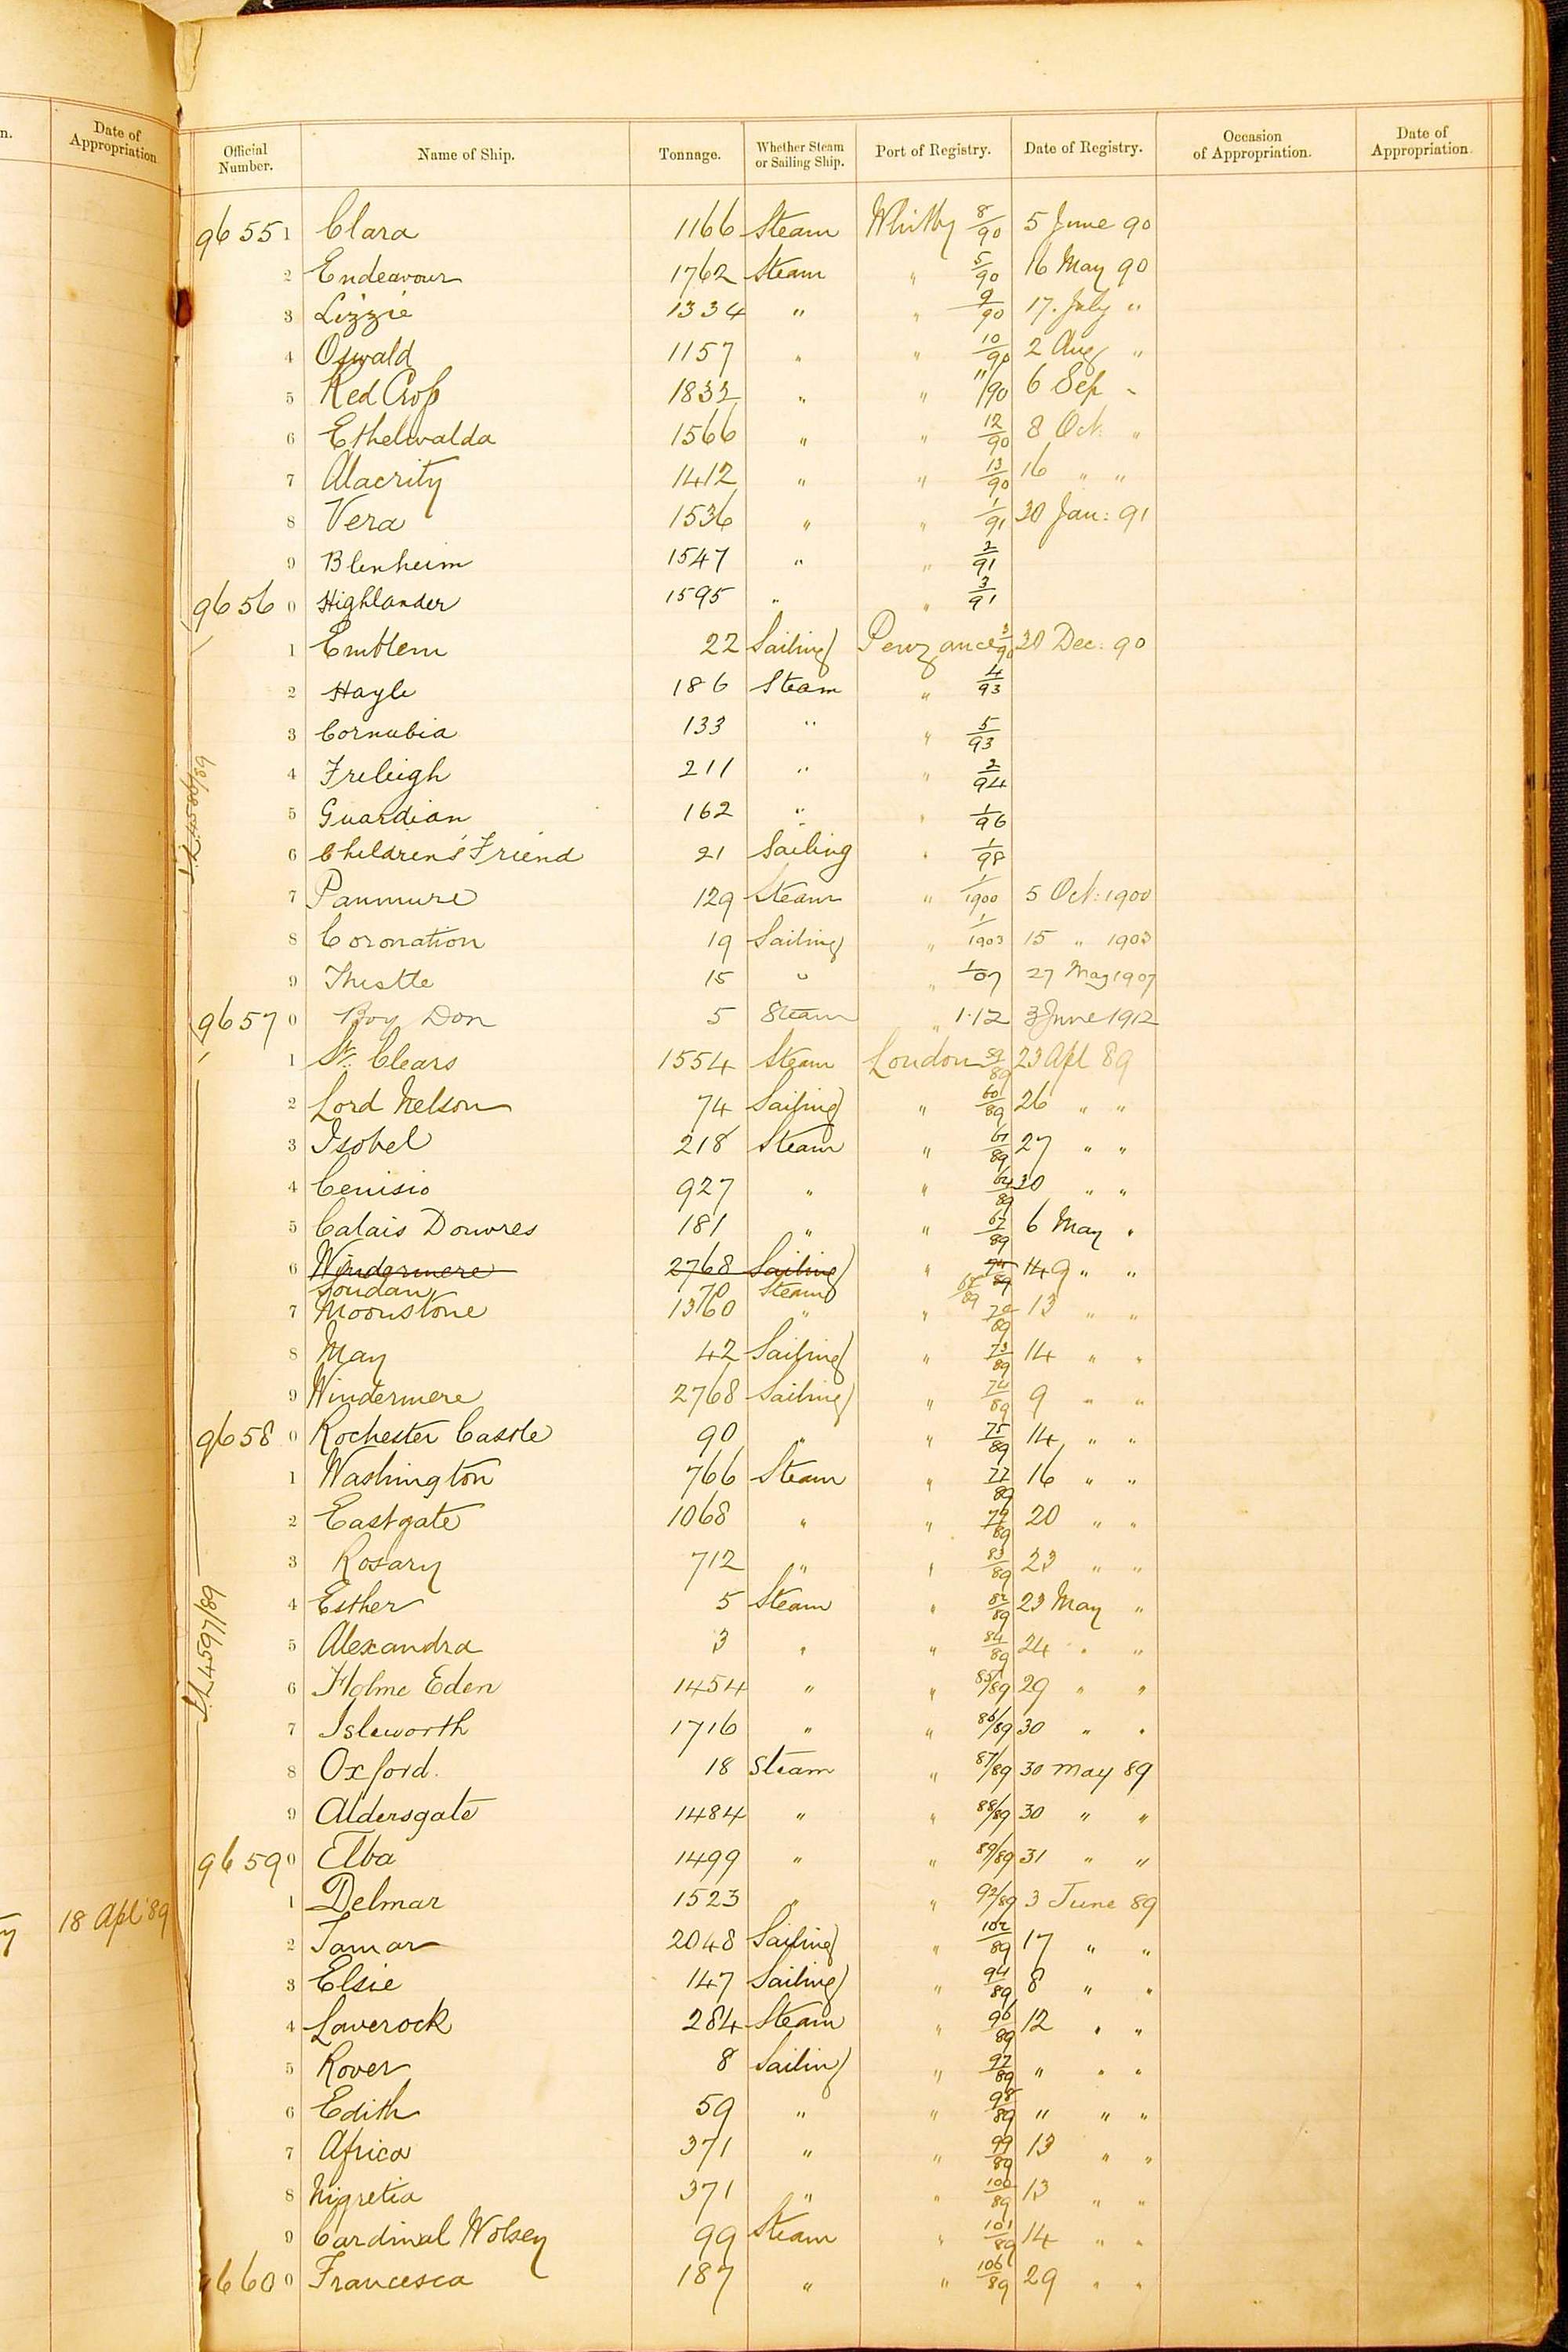 n.
Date of Appropriation
Official Number. Name of Ship. Tonnage. Whether Steam or Sailing Ship. Port of Registry. Date of Registry. Occasion of Appropriation. Date of Appropriation.
96551 Clara 1166 Steam Whitby 8/90 5 June 90
2 Endeavour 1762 Steam " 5/90 16 May 90
3 Lizzie 1334 " " 9/90 17. July "
4 Oswald 1157 " " 10/90 2 Aug "
5 Red Cross 1832 " " 11/90 6 Sep "
6 Ethelwalda 1566 " " 12/90 8 Oct. "
7 Alacrity 1412 " " 13/90 16 " "
8 Vera 1536 " " 1/91 30 Jan: 91
9 Blenheim 1547 " " 2/91
96560 Highlander 1595 " " 3/91
1 Emblem 22 Sailing Penzance 3/90 30 Dec: 90
2 Hayle 186 Steam " 4/93
3 Cornubia 133 " " 5/93
4 Treleigh 211 " " 2/94
5 Guardian 162 " " 1/96
6 Children's Friend 21 Sailing " 1/98
7 Panmure 129 Steam " 1/1900 5 Oct: 1900
8 Coronation 19 Sailing " 1/1903 15 " 1903
9 Thistle 15 " " 1/07 27 May 1907
96570 Boy Don 5 Steam " 1.12 3 June 1912
1 St. Clears 1554 Steam London 59/89 23 Apl 89
2 Lord Nelson 74 Sailing " 60/89 26 " "
3 Isobel 218 Steam " 61/89 27 " "
4 Cenisio 927 " " 64/89 30 " "
5 Calais Douvres 181 " " 67/89 6 May "
6 Windermere 2768 Sailing " 74/89 9 " "
Soudan 70 Steam 68/89
7 Moonstone 1360 " " 72/89 13 " "
8 May 42 Sailing " 73/89 14 " "
9 Windermere 2768 Sailing " 74/89 9 " "
96580 Rochester Castle 90 " " 75/89 14 " "
1 Washington 766 Steam " 77/89 16 " "
2 Eastgate 1068 " " 79/89 20 " "
3 Rosary 712 " " 83/89 23 " "
4 Esther 5 Steam " 82/89 23 May "
5 Alexandra 3 " " 84/89 24 " "
6 Holme Eden 1454 " " 85/89 29 " "
7 Isleworth 1716 " " 86/89 30 " "
8 Oxford. 18 Steam " 87/89 30 May 89
9 Aldersgate 1484 " " 88/89 30 " "
96590 Elba 1499 " " 89/89 31 " "
1 Delmar 1523 " " 92/89 3 June 89
18 Apl '89
2 Tamar 2048 Sailing " 102/89 17 " "
3 Elsie 147 Sailing " 94/89 8 " "
4 Laverock 284 Steam " 96/89 12 " "
5 Rover 8 Sailing " 97/89 " " "
6 Edith 59 " " 98/89 " " "
7 Africa 371 " " 99/89 13 " "
8 Nigretia 371 " " 100/89 13 " "
9 Cardinal Wolsey 99 Steam " 101/89 14 " "
6600 Francesca 187 " " 106/89 29 " "
4597/89